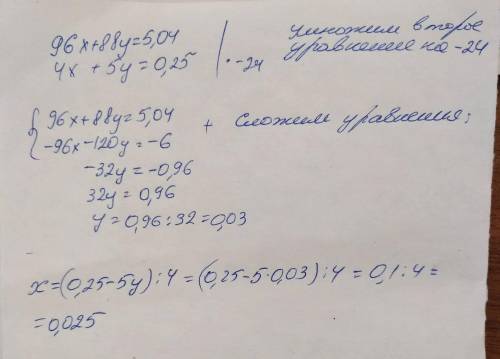 96x+88y=5,04
4x +5y=0,25 | ·-24
умножим второе
уравнение на -24
{96x+88y=5,04
-96x-120y=-6 + сложим уравнения:
-32y=-0,96
32y=0,96
y=0,96:32=0,03
x=(0,25-5y):4=(0,25-5·0,03):4=0,1:4=
=0,025